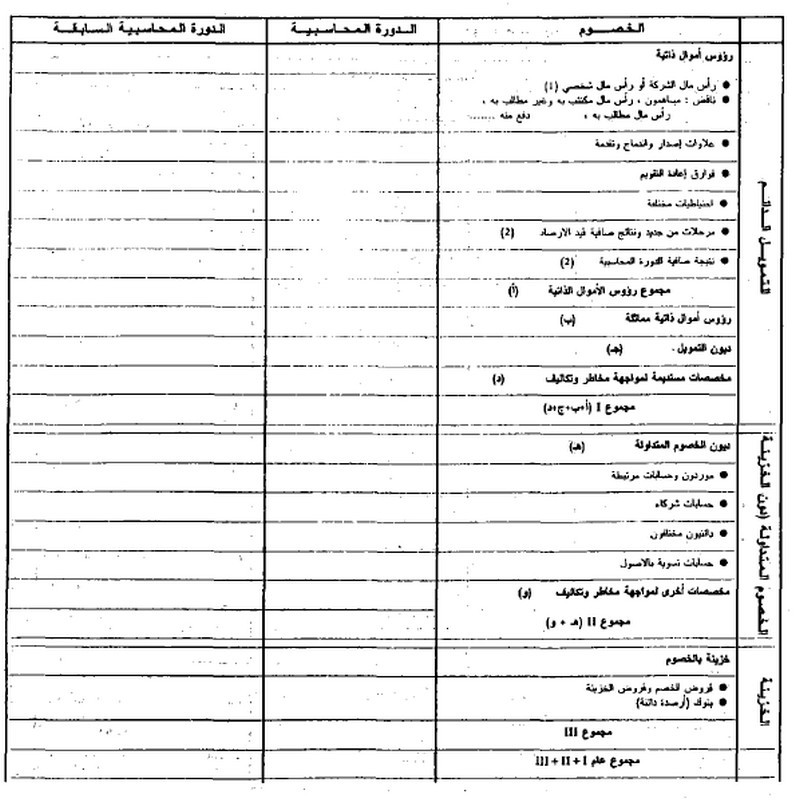 الخصوم
الدورة المحاسبية
الدورة المحاسبية السابقة
التمويل الدائم
رؤوس أموال ذاتية
● رأس مال الشركة أو رأس مال شخصي (1)
● ناقص : مساهمون ، رأس مال مكتتب به وغير مطالب به ،
رأس مال مطالب به ، دفع منه .......
● علاوات إصدار واندماج وتقدمة
● فوارق إعادة التقويم
● احتياطيات مختلفة
● مرحلات من جديد ونتائج صافية قيد الارصاد (2)
● نتيجة صافية للدورة المحاسبية (2)
مجموع رؤوس الأموال الذاتية (أ)
رؤوس أموال ذاتية مماثلة (ب)
ديون التمويل . (جـ)
مخصصات مستديمة لمواجهة مخاطر وتكاليف (د)
مجموع I (أ+ب+ج+د)
الخصوم المتداولة (دون الخزينة)
ديون الخصوم المتداولة (هـ)
● موردون وحسابات مرتبطة
● حسابات شركاء
● دائنون مختلفون
● حسابات تسوية بالاصول
مخصصات أخرى لمواجهة مخاطر وتكاليف (و)
مجموع II (هـ + و)
الخزينة
خزينة بالخصوم
● قروض الخصم وقروض الخزينة
● بنوك (أرصدة دائنة)
مجموع III
مجموع عام III + II + I